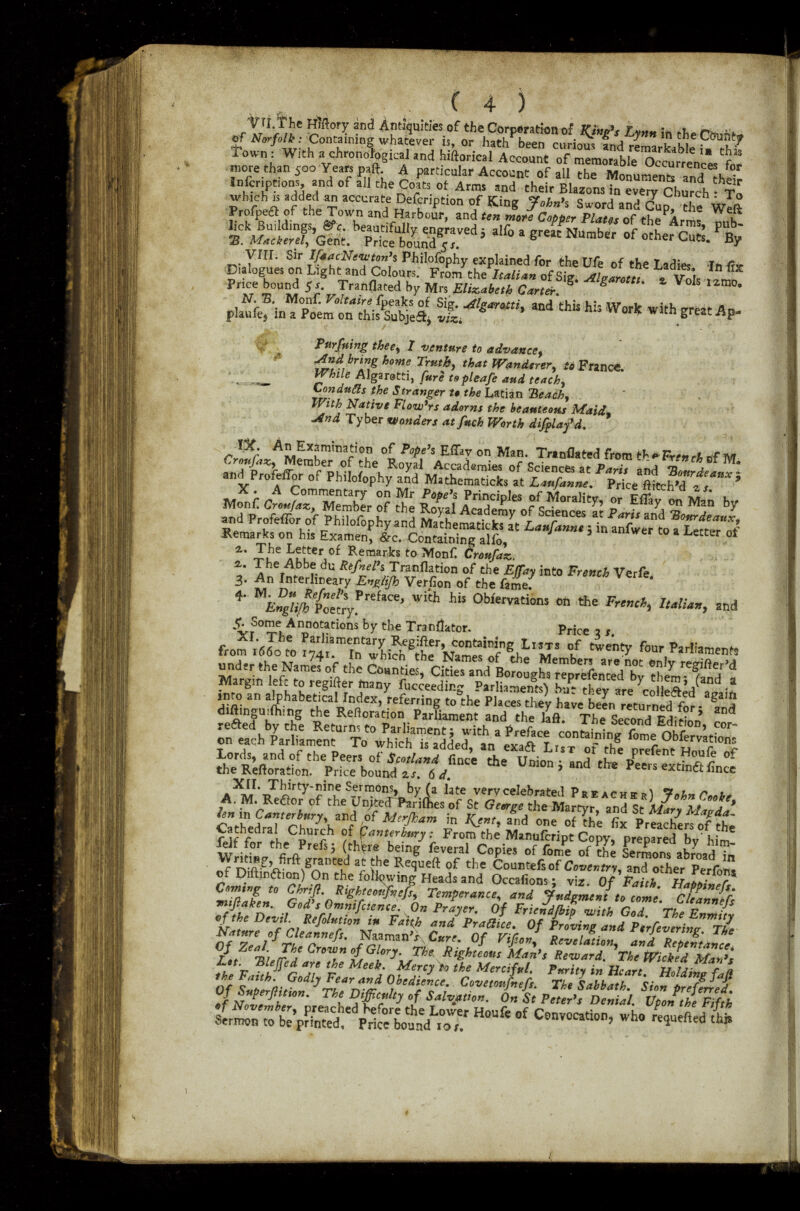 ( 4 )
VII. The Hiſtory and Antiquities of the Corporation of King's Lynn in the County
of Norfolk: Containing whatever is, or hath been curious and remarkable in this
Town: With a chronological and hiſtorical Account of memorable Occurrences for
more than 500 Years paſt. A particular Account of all the Monuments and their
Inſcriptions, and of all the Coats of Arms and their Blazons in every Church: To
which is added an accurate Deſcription of King John's Sword and Cup, the Weſt
Proſpect of the Town and Harbour, and ten more Copper Plates of the Arms, pub-
lick Buildings, &c. beautifully engraved; alſo a great Number of other Cuts. By
B. Mackerel, Gent. Price bound 5 s.
VIII. Sir IſaacNewton's Philoſophy explained for the Uſe of the Ladies. In ſix
Dialogues on Light and Colours. From the Italian of Sig. Algarotti. 2 Vols 12mo.
Price bound 5 s. Tranſlated by Mrs Elizabeth Carter.
N. B. Monſ. Voltaire ſpeaks of Sig. Algarotti, and this his Work with great Ap-
plauſe, in a Poem on this Subject, viz.
Purſuing thee, I venture to advance,
And bring home Truth, that Wanderer, to France.
While Algarotti, ſure to pleaſe and teach,
Conducts the Stranger to the Latian Beach,
With Native Flow'rs adorns the beauteous Maid,
And Tyber wonders at ſuch Worth diſplay'd.
IX. An Examination of Pope's Eſſay on Man. Tranſlated from the French of M.
Crouſax, Member of the Royal Accademies of Sciences at Paris and Bourdeaux;
and Profeſſor of Philoſophy and Mathematicks at Lauſanne. Price ſtitch'd 2 s.
X. A Commentary on Mr Pope's Principles of Morality, or Eſſay on Man by
Monſ. Crouſaz, Member of the Royal Academy of Sciences at Paris and Bourdeaux,
and Profeſſor of Philoſophy and Mathematicks at Lauſanne; in anſwer to a Letter of
Remarks on his Examen, &c. Containing alſo,
2. The Letter of Remarks to Monſ. Crouſaz.
2. The Abbe du Reſnel's Tranſlation of the Eſſay into French Verſe.
3. An Interlineary Engliſh Verſion of the ſame.
4. M. Du Reſnel's Preface, with his Obſervations on the French, Italian, and
Engliſh Poetry.
5. Some Annotations by the Tranſlator. Price 3 s.
XI. The Parliamentary Regiſter, containing LISTS of twenty four Parliaments
from 1660 to 1741. In which the Names of the Members are not only regiſter'd
under the Names of the Counties, Cities and Boroughs repreſented by them; (and a
Margin left to regiſter many ſucceeding Parliaments) but they are collected again
into an alphabetical Index, referring to the Places they have been returned for; and
diſtinguiſhing the Reſtoration Parliament and the laſt. The Second Edition, cor-
rected by the Returns to Parliament; with a Preface containing ſome Obſervations
on each Parliament To which is added, an exact LIST of the preſent Houſe of
Lords, and of the Peers of Scotland ſince the Union; and the Peers extinct ſince
the Reſtoration. Price bound 2s. 6 d.
XII. Thirty-nine Sermons, by (a late very celebrated PREACHER) John Cooke,
A. M. Rector of the United Pariſhes of St George the Martyr, and St Mary Magda-
len in Canterbury, and of Merſham in Kent, and one of the ſix Preachers of the
Cathedral Church of Canterbury: From the Manuſcript Copy, prepared by him-
ſelf for the Preſs; (there being ſeveral Copies of ſome of the Sermons abroad in
Writing, firſt granted at the Requeſt of the Counteſs of Coventry, and other Perſons
of Diſtinction) On the following Heads and Occaſions; viz. Of Faith. Happineſs.
Coming to Chriſt. Righteouſneſs, Temperance, and Judgment to come. Cleanneſs
miſtaken. God's Omniſcience. On Prayer. Of Friendſhip with God. The Enmity
of the Devil. Reſolution in Faith and Practice. Of Proving and Perſevering. The
Nature of Cleanneſs. Naaman's Cure. Of Viſion, Revelation, and Repentance.
Of Zeal. The Crown of Glory. The Righteous Man's Reward. The Wicked Man's
Let. Bleſſed are the Meek. Mercy to the Merciful. Purity in Heart. Holding faſt
the Faith. Godly Fear and Obedience. Covetouſneſs. The Sabbath. Sion preferred.
Of Superſtition. The Difficulty of Salvation. On St Peter's Denial. Upon the Fifth
of November, preached before the Lower Houſe of Convocation, who requeſted this
Sermon to be printed. Price bound 10 s.